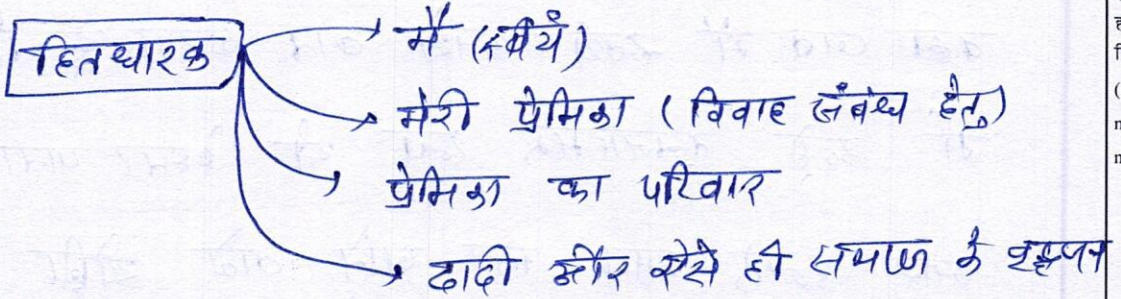 हितधारक
मैं (स्वयं)
मेरी प्रेमिका (विवाह संबंध हेतु)
प्रेमिका का परिवार
दादी और ऐसे ही समाज के वृद्धजन